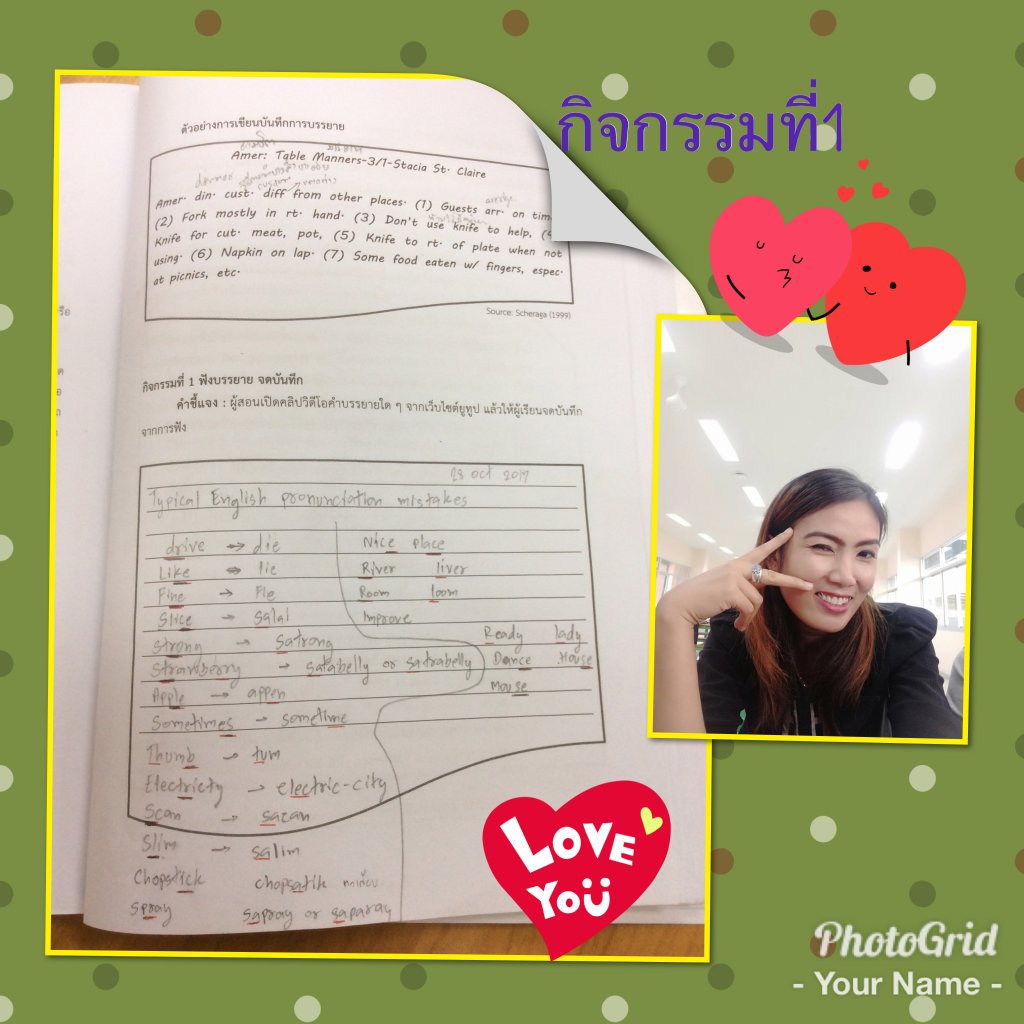 กิจกรรมที่1
ตัวอย่างการเขียนบันทึกการบรรยาย
Amer: Table Manners-3/1-Stacia St. Claire
Amer. din. cust. diff from other places. (1) Guests arr. on time
(2) Fork mostly in rt. hand. (3) Don't use knife to help, (4)
Knife for cut. meat, pot, (5) Knife to rt. of plate when not
using. (6) Napkin on lap. (7) Some food eaten w/ fingers, espec.
at picnics, etc.
Source: Scheraga (1999)
กิจกรรมที่ 1 ฟังบรรยาย จดบันทึก
คำชี้แจง : ผู้สอนเปิดคลิปวิดีโอคำบรรยายใด ๆ จากเว็บไซต์ยูทูป แล้วให้ผู้เรียนจดบันทึก
จากการฟัง
28 oct 2017
Typical English pronunciation mistakes
drive ⇔ die Nice place
Like ⇔ lie River liver
Fine → Fie Room loom
Slice → Salai Improve
Strong → Satrong Ready lady
Strawberry → satabelly or satrabelly Dance House
Apple → appen Mouse
Sometimes → sometime
Thumb → tum
Electricty → electric-city
Scan → sacan
Slim → salim
Chopstick chopsatik
Spray sapray or saparay
LOVE
YOU
PhotoGrid
- Your Name -